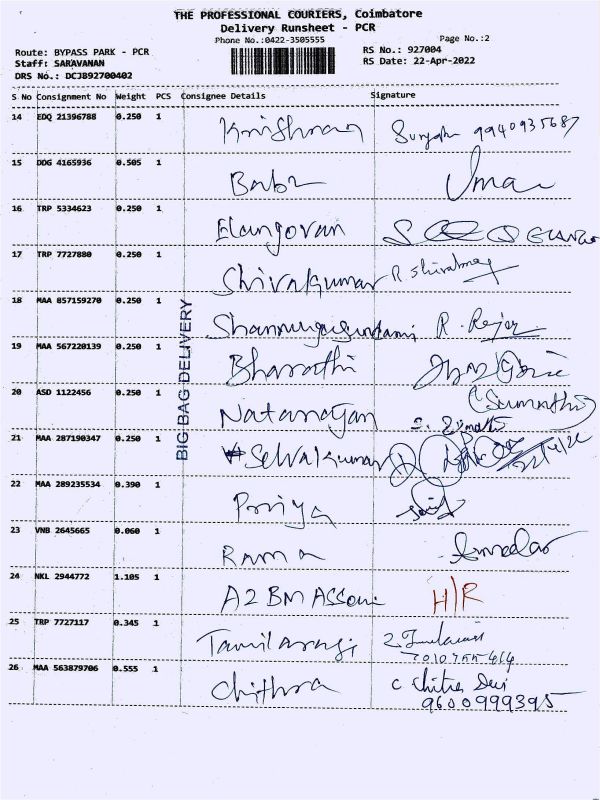 THE PROFESSIONAL COURIERS, Coimbatore
Delivery Runsheet - PCR
Phone No.:0422-3505555 Page No.:2
Route: BYPASS PARK - PCR RS No.: 927004
Staff: SARAVANAN RS Date: 22-Apr-2022
DRS No.: DCJ892700402
S No Consignment No Weight PCS Consignee Details Signature
14 EDQ 21396788 0.250 1 Krishnan 9940935687
15 DDG 4165936 0.505 1 Babu Uma
16 TRP 5334623 0.250 1 Elangovan
17 TRP 7727880 0.250 1 Shivakumar R Shivakumar
18 MAA 857159270 0.250 1 Shanmugasundaram
19 MAA 567220139 0.250 1 Bharathi
20 ASD 1122456 0.250 1 Natarajan
21 MAA 287190347 0.250 1 Selvakumar
22 MAA 289235534 0.390 1 Priya
23 VNB 2645665 0.060 1 Rama
24 NKL 2944772 1.105 1 A2 BM H/R
25 TRP 7727117 0.345 1 Tamilarasi
26 MAA 563879706 0.555 1 Chithra C Chitra Devi
9600999395
BIG BAG DELIVERY